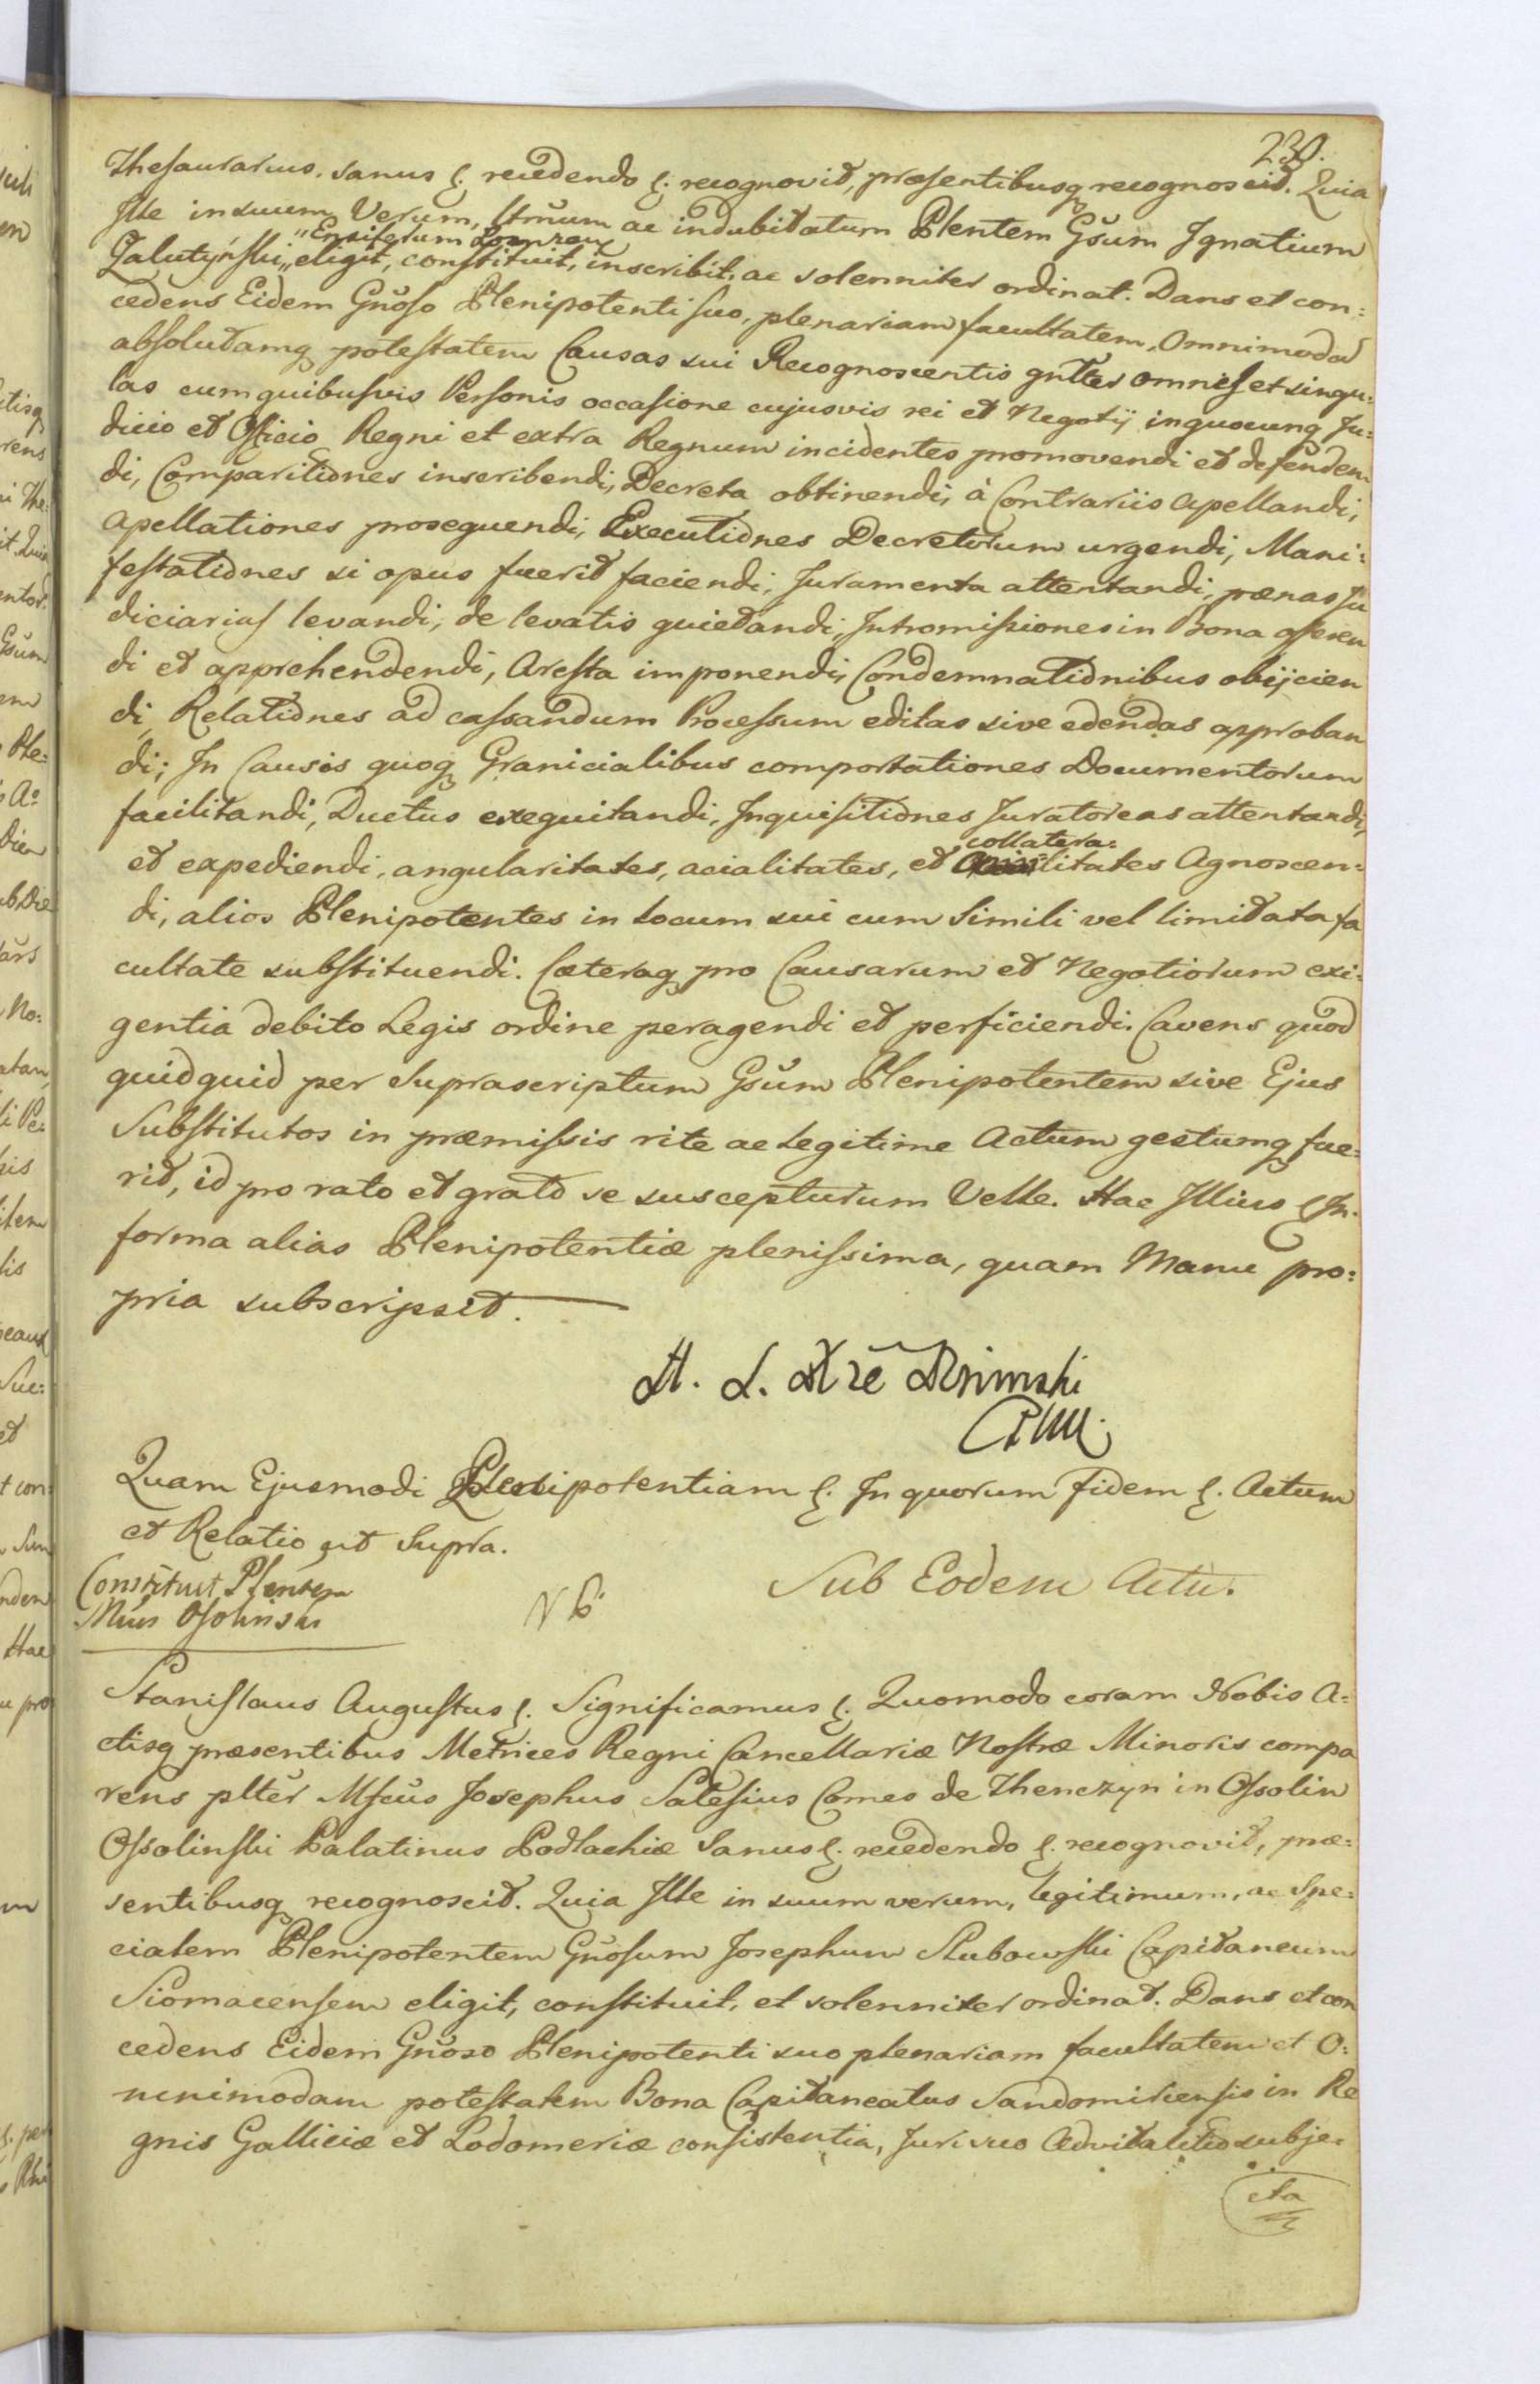 230.
Thesaurarius. sanus ꝭ. recedendo ꝭ. recognovit, præsentibusq recognoscit. Quia
Ille in suum Verum, ltm̃um ac indubitatum Plentem Gsũm Ignatium
"Ensiferum
Zalutyński,, eligit, constituit, inscribit, ac solenniter ordinat. Dans et con:
cedens Eidem Gnõso Plenipotenti suo, plenariam facultatem, Omnimodã
absolutamq potestatem Causas sui Recognoscentis gnltes omnes et singu:
las cum quibusvis Personis occasione cujusvis rei et Negotij in quocunq Ju:
dicio et Officio Regni et extra Regnum incidentes promovendi et defenden
di, Comparitiones inscribendi, Decreta obtinendi, à Contrariis Apellandi,
Apellationes prosequendi, Executiones Decretorum urgendi, Mani:
festationes si opus fuerit faciendi, Juramenta attentandi, pœnas Ju
diciarias levandi, de levatis quietandi, Intromissiones in Bona asseren
di et apprehendendi, Aresta imponendi, Condemnationibus obijcien
di, Relationes ad cassandum Processum editas sive edendas approban
di; In Causis quoq Granicialibus comportationes Documentorum
facilitandi, Ductus exequitandi, Inquisitiones Juratoreas attentandi,
collatera:
et expediendi, angularitates, acialitates, et litates Agnoscen:
di, alios Plenipotentes in Locum sui cum Simili vel limitata fa
cultate substituendi. Cæteraq pro Causarum et Negotiorum exi:
gentia debito Legis ordine peragendi et perficiendi. Cavens quod
quidquid per Suprascriptum Gsũm Plenipotentem sive Ejus
Substitutos in præmissis rite ac Legitime Actum gestumq fue:
rit, id pro rato et grato se suscepturum Velle. Hac Illius ꝭ In
forma alias Plenipotentiæ plenissima, quam Manu pro:
pria subscripsit.
Quam Ejusmodi Plenipotentiam ꝭ. In quorum fidem ꝭ. Actum
et Relatio ut Supra.
Constituit Plentem
Mcus Ossolinski
NB
Sub Eodem Actu.
Stanislaus Augustus ꝭ. Significamus ꝭ. Quomodo coram Nobis A:
ctisq præsentibus Metrices Regni Cancellariæ Nostræ Minoris compa
rens pltẽr Mfcũs Josephus Salesius Comes de Thenczyn in Ossolin
Ossolinski Palatinus Podlachiæ Sanus ꝭ. recedendo ꝭ. recognovit, præ:
sentibusq recognoscit. Quia Ille in suum verum, legitimum, ac Spe:
cialem Plenipotentem Gnõsum Josephum Slubowski Capitaneum
Siomacensem eligit, constituit, et solenniter ordinat. Dans et con
cedens Eidem Gnõso Plenipotenti suo plenariam facultatem et O:
mnimodam potestatem Bona Capitaneatus Sandomiriensis in Re
gnis Galliciæ et Lodomeriæ consistentia, Juri suo Advitalitio subje:
cta